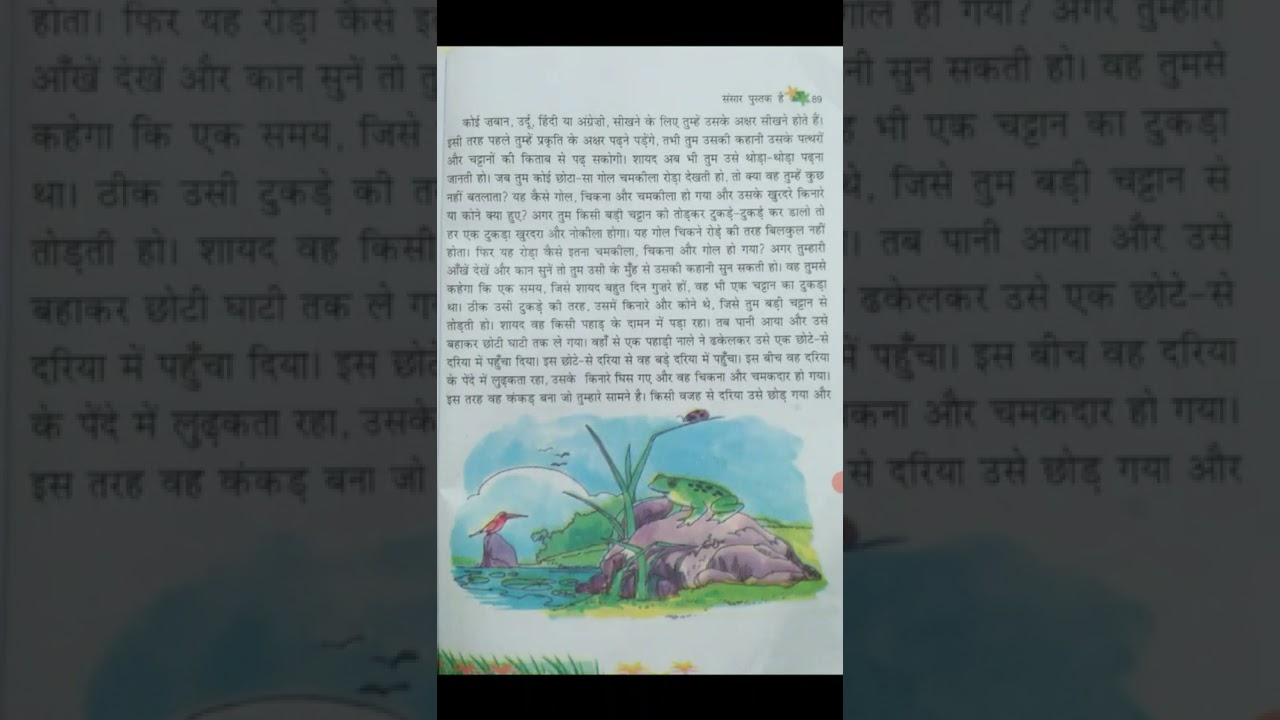 संसार पुस्तक है 89
कोई ज़बान, उर्दू, हिंदी या अंग्रेज़ी, सीखने के लिए तुम्हें उसके अक्षर सीखने होते हैं।
इसी तरह पहले तुम्हें प्रकृति के अक्षर पढ़ने पड़ेंगे, तभी तुम उसकी कहानी उसके पत्थरों
और चट्टानों की किताब से पढ़ सकोगी। शायद अब भी तुम उसे थोड़ा-थोड़ा पढ़ना
जानती हो। जब तुम कोई छोटा-सा गोल चमकीला रोड़ा देखती हो, तो क्या वह तुम्हें कुछ
नहीं बतलाता? यह कैसे गोल, चिकना और चमकीला हो गया और उसके खुरदरे किनारे
या कोने क्या हुए? अगर तुम किसी बड़ी चट्टान को तोड़कर टुकड़े-टुकड़े कर डालो तो
हर एक टुकड़ा खुरदरा और नोकीला होगा। यह गोल चिकने रोड़े की तरह बिलकुल नहीं
होता। फिर यह रोड़ा कैसे इतना चमकीला, चिकना और गोल हो गया? अगर तुम्हारी
आँखें देखें और कान सुनें तो तुम उसी के मुँह से उसकी कहानी सुन सकती हो। वह तुमसे
कहेगा कि एक समय, जिसे शायद बहुत दिन गुज़रे हों, वह भी एक चट्टान का टुकड़ा
था। ठीक उसी टुकड़े की तरह, उसमें किनारे और कोने थे, जिसे तुम बड़ी चट्टान से
तोड़ती हो। शायद वह किसी पहाड़ के दामन में पड़ा रहा। तब पानी आया और उसे
बहाकर छोटी घाटी तक ले गया। वहाँ से एक पहाड़ी नाले ने ढकेलकर उसे एक छोटे-से
दरिया में पहुँचा दिया। इस छोटे-से दरिया से वह बड़े दरिया में पहुँचा। इस बीच वह दरिया
के पेंदे में लुढ़कता रहा, उसके किनारे घिस गए और वह चिकना और चमकदार हो गया।
इस तरह वह कंकड़ बना जो तुम्हारे सामने है। किसी वजह से दरिया उसे छोड़ गया और